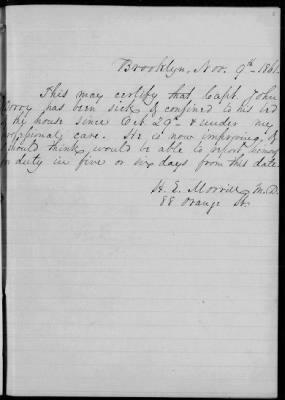 Brooklyn, Nov. 9th 1861.
This may certify that Capt. John
has been sick & confined to his bed
my house since Oct. 29th & under my
care. He is now improving, &
should think would be able to report himself
duty in five or six days from this date
H. E. Morrill, M.D.
88 Orange St.